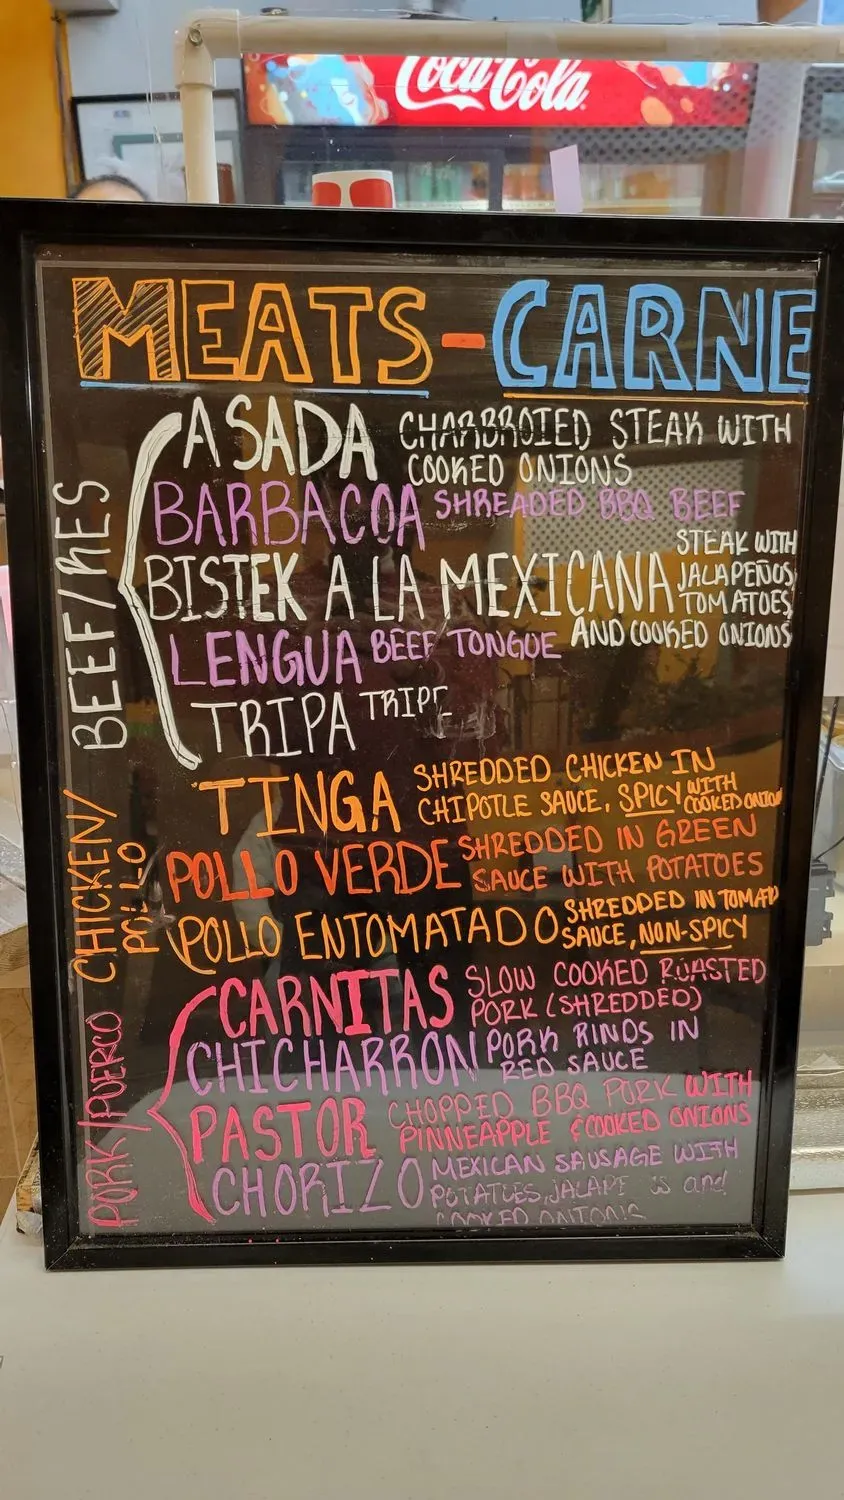 Coca-Cola
MEATS-CARNE
BEEF/RES
ASADA CHARBROIED STEAK WITH
COOKED ONIONS
BARBACOA SHREADED BBQ BEEF
BISTEK A LA MEXICANA STEAK WITH
JALAPEÑOS,
TOMATOES,
AND COOKED ONIONS
LENGUA BEEF TONGUE
TRIPA TRIPE
CHICKEN/
POLLO
TINGA SHREDDED CHICKEN IN
CHIPOTLE SAUCE, SPICY WITH
COOKED ONION
POLLO VERDE SHREDDED IN GREEN
SAUCE WITH POTATOES
POLLO ENTOMATADO SHREDDED IN TOMATO
SAUCE, NON-SPICY
PORK/PUERCO
CARNITAS SLOW COOKED ROASTED
PORK (SHREDDED)
CHICHARRON PORK RINDS IN
RED SAUCE
PASTOR CHOPPED BBQ PORK WITH
PINNEAPPLE & COOKED ONIONS
CHORIZO MEXICAN SAUSAGE WITH
POTATOES, and
COOKED ONIONS